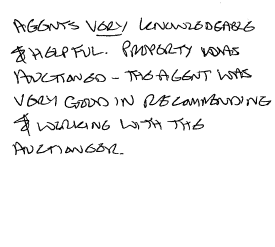 AGENTS VERY KNOWLEDGEABLE
& HELPFUL. PROPERTY WAS
AUCTIONED - THE AGENT WAS
VERY GOOD IN RECOMMENDING
& WORKING WITH THE
AUCTIONEER.